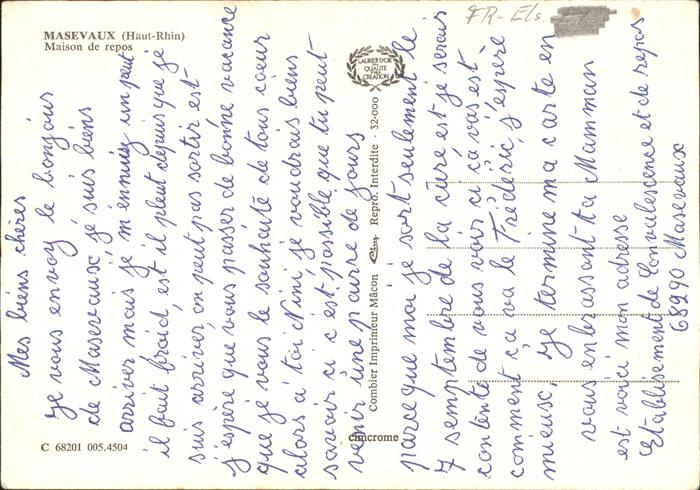 MASEVAUX (Haut-Rhin)
Maison de repos
Mes biens chères
Je vous envoy le bonjour
de Masevaux je suis biens
arriver mais je m'ennuiy un peut
il fait froid, est il pleut depuis que je
suis arriver on peut pas sortir est
j'espère que vous passer de bonne vacance
que je vous le souhaite de tous coeur
alors à toi Nini je voudrais biens
savoir ci c'est possible que tu peut
venir une pairre de jours
parce que moi je sort seulement le
7 semptembre de la cure est je serais
contente de vous voir ci ça vas est
comment ç'a va le Fréderic, j'espère
mieux, Je termine ma carte en
vous enbrassant ta Mamman
est voici mon adresse
Etablisement de Convalescence et de repos
68290 Masevaux
LAURIER D'OR
DE LA
QUALITE
CREATION
Combier Imprimeur Mâcon Cim Repro. Interdite · 32-000
cimcrome
C 68201 005.4504
FR-Els.